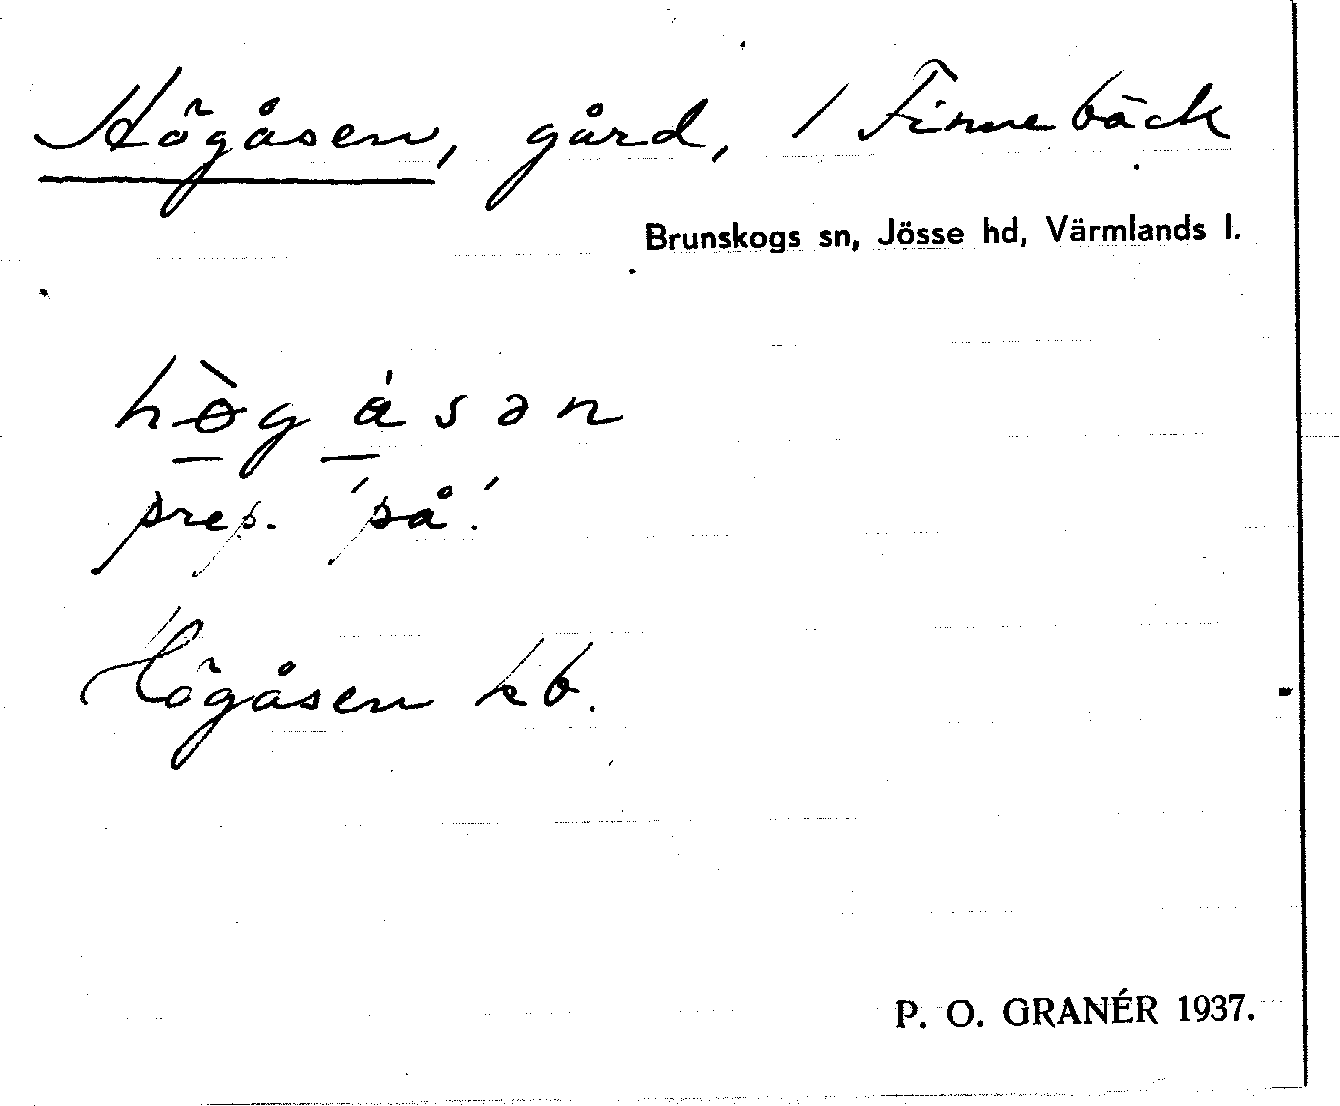 Högåsen, gård, / Finnebäck
Brunskogs sn, Jösse hd, Värmlands l.
hø̀gåsən
prep. 'på'.
Högåsen kb.
P. O. GRANÉR 1937.